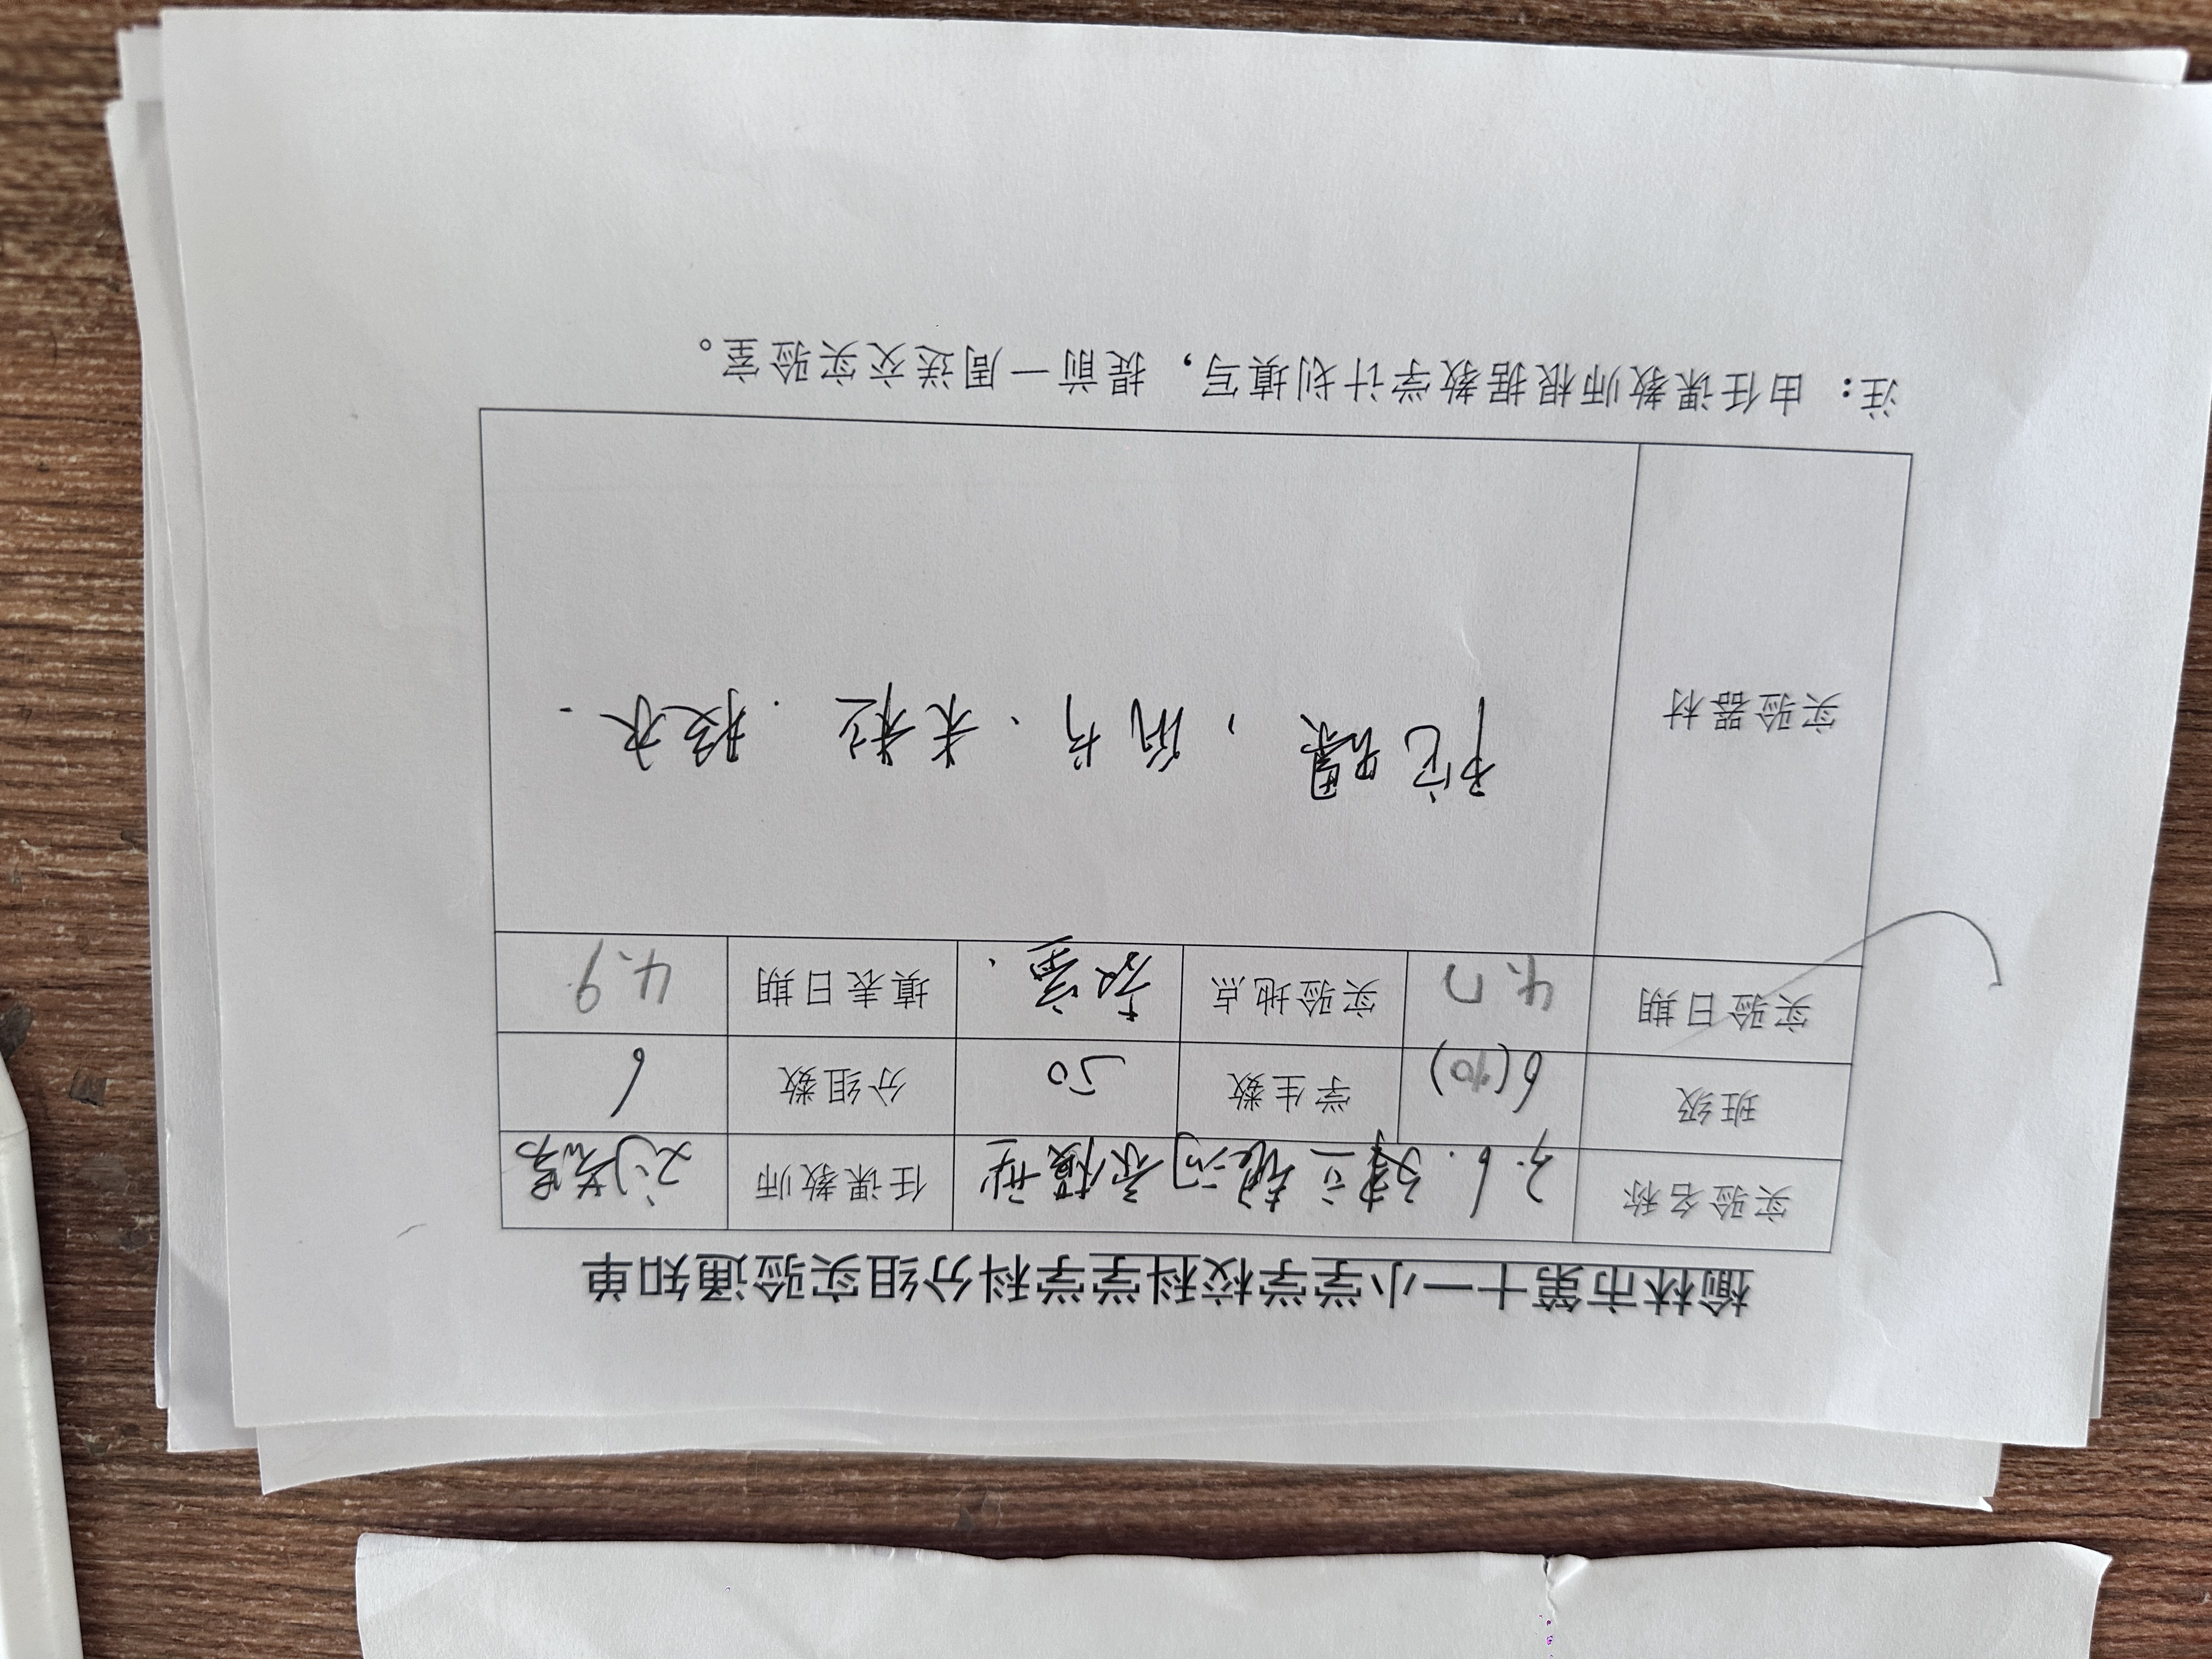 榆林市第十一小学学校科学学科分组实验通知单
实验名称 3.6.建立银河系模型 任课教师
班级 6(10) 学生数 50 分组数 6
实验日期 4.7 实验地点 教室. 填表日期 4.9
实验器材 米粒. 胶水.
注：由任课教师根据教学计划填写，提前一周送交实验室。